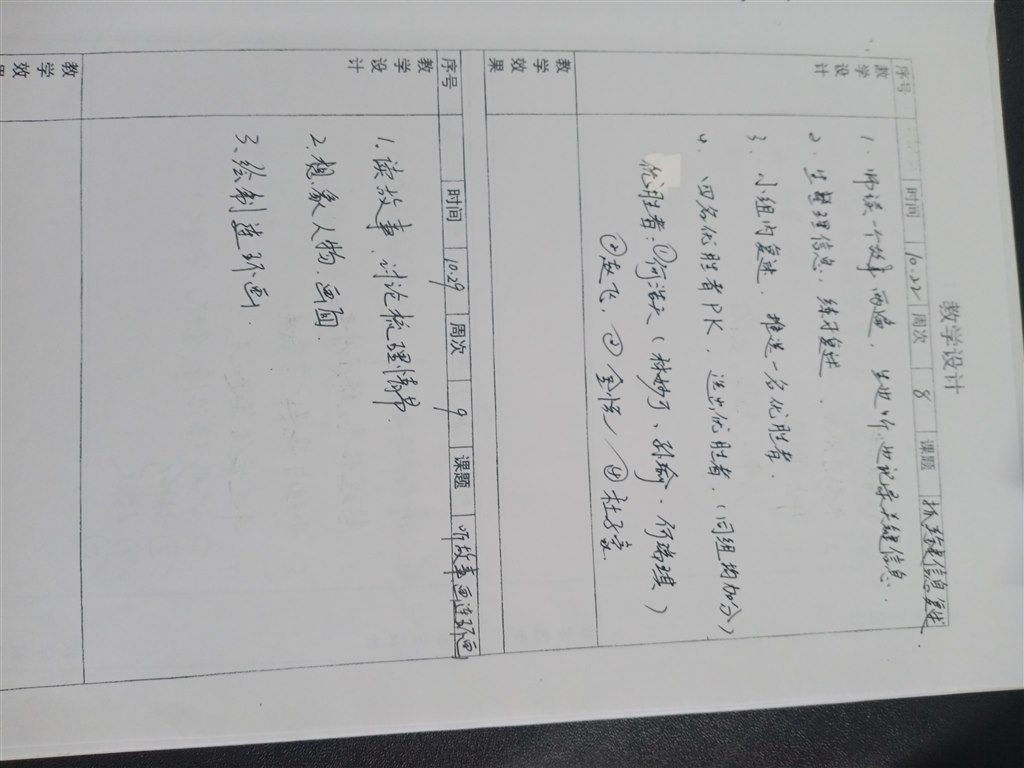 教学设计
序号 时间 10.22 周次 8 课题 抓关键信息复述
教学设计
1. 师读一个故事两遍，生边听边记录关键信息.
2. 生整理信息，练习复述.
3. 小组内复述，推选一名优胜者.
4. 四名优胜者PK，选出优胜者，（同组均加分）
优胜者：①何浩天（林妙、孙瑜、何瑞琪）
②赵飞，③ ④杜子
教学效果
序号 时间 10.29 周次 9 课题 听故事画连环画
教学设计
1. 读故事，讨论梳理情节.
2. 想象人物、画面
3. 绘制连环画.
教学效果